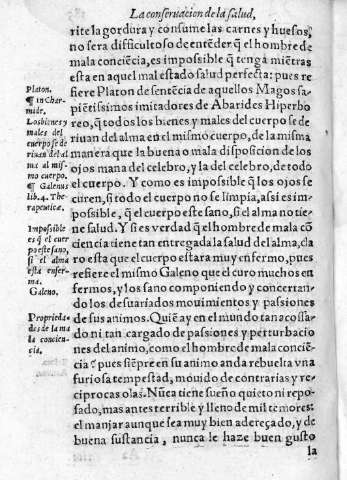 La conseruacion de la salud,
rite la gordura y consume las carnes y huesos,
no sera difficultoso de entẽder q̃ el hombre de
mala conciẽcia, es impossible q̃ tenga miẽtras
esta en aquel mal estado salud perfecta: pues re
fiere Platon de sentẽcia de aquellos Magos sa-
piẽtissimos imitadores de Abarides Hiperbo
reo, q̃ todos los bienes y males del cuerpo se de
riuan del alma en el mismo cuerpo, de la misma
manera que la buena o mala disposicion de los
ojos mana del celebro, y la del celebro, de todo
el cuerpo. Y como es impossible q̃ los ojos se
curen, si todo el cuerpo no se limpia, assi es im-
possible, q̃ el cuerpo este sano, si el alma no tie-
ne salud. Y si es verdad q̃ el hombre de mala cõ
ciencia tiene tan entregada la salud del alma, cla
ro esta que el cuerpo estara muy enfermo, pues
refiere el mismo Galeno que el curo muchos en
fermos, y los sano componiendo y concertan-
do los desuariados mouimientos y passiones
de sus animos. Quiẽ ay en el mundo tan acossa-
do ni tan cargado de passiones y perturbacio
nes del animo, como el hombre de mala conciẽ-
cia? pues siẽpre en su animo anda rebuelta vna
furiosa tempestad, mouido de contrarias y re-
ciprocas olas. Nũca tiene sueño quieto ni repo-
sado, mas antes terrible y lleno de mil temores:
el manjar aunque sea muy bien adereçado, y de
buena sustancia, nunca le haze buen gusto
la
Platon.
¶ in Char-
mide.
Los bienes y
males del
cuerpo se de
riuan del al
ma al mis-
mo cuerpo.
¶ Galenus
lib. 4. The-
rapeuticæ.
Impossible
es q̃ el cuer
po este sano,
si el alma
esta enfer-
ma.
Galeno.
Proprieda-
des de la ma
la concien-
cia.